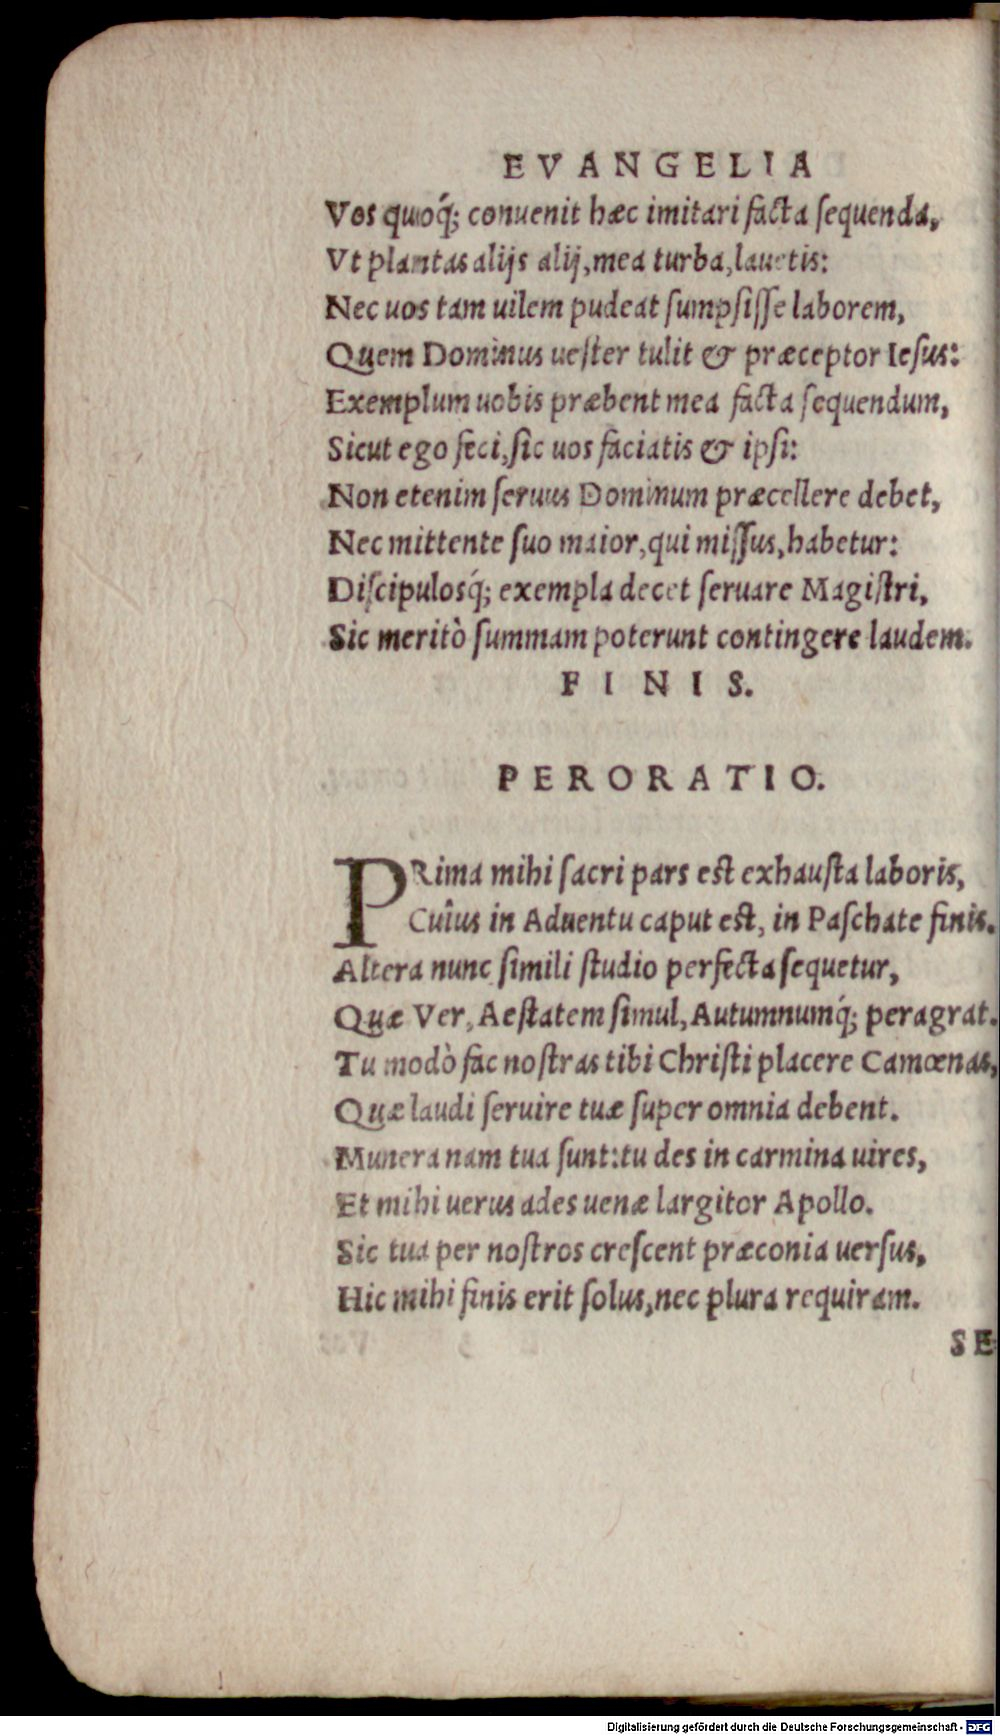 EVANGELIA
Vos quoq́; conuenit hæc imitari facta ſequenda,
Vt plantas alijs alij, mea turba, lauetis:
Nec uos tam uilem pudeat ſumpſiſſe laborem,
Quem Dominus ueſter tulit & præceptor Ieſus:
Exemplum uobis præbent mea facta ſequendum,
Sicut ego feci, ſic uos faciatis & ipſi:
Non etenim ſeruus Dominum præcellere debet,
Nec mittente ſuo maior, qui miſſus, habetur:
Diſcipulosq́; exempla decet ſeruare Magiſtri,
Sic meritò ſummam poterunt contingere laudem.
FINIS.
PERORATIO.
PRima mihi ſacri pars est exhauſta laboris,
Cuius in Aduentu caput est, in Paſchate finis.
Altera nunc ſimili ſtudio perfecta ſequetur,
Quæ Ver, Aeſtatem ſimul, Autumnumq́; peragrat.
Tu modò fac noſtras tibi Chriſti placere Camœnas,
Quæ laudi ſeruire tuæ ſuper omnia debent.
Munera nam tua ſunt: tu des in carmina uires,
Et mihi uerus ades uenæ largitor Apollo.
Sic tua per noſtros creſcent præconia uerſus,
Hic mihi finis erit ſolus, nec plura requiram.
SE
Digitalisierung gefördert durch die Deutsche Forschungsgemeinschaft - DFG